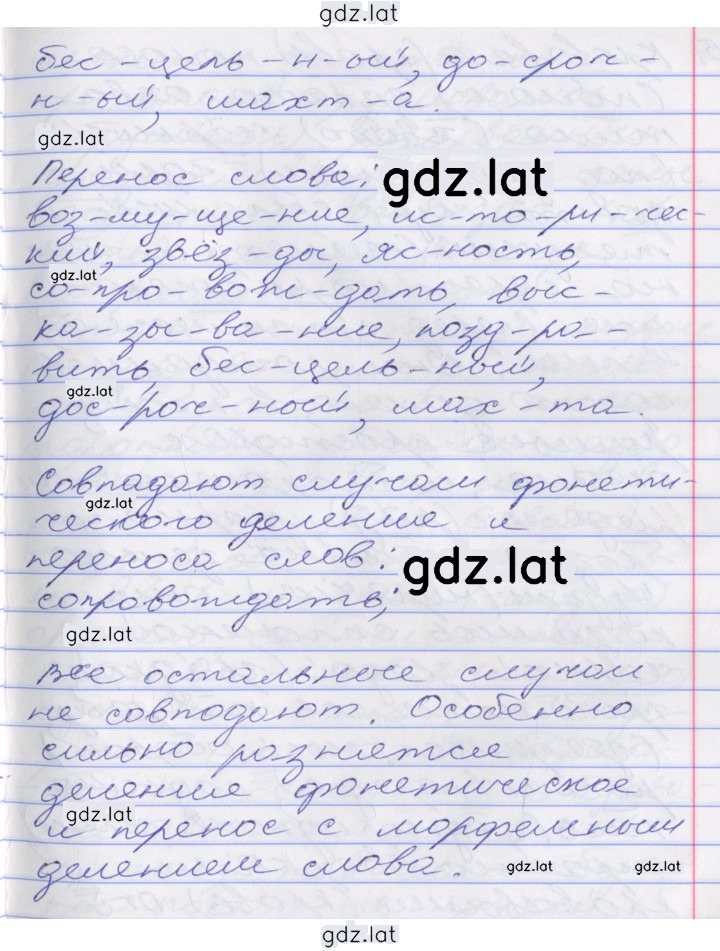 gdz.lat
бес-цель-н-ый, до-сроч-
н-ый, шахт-а.
gdz.lat
Перенос слова:
gdz.lat
воз-му-ще-ние, ис-то-ри-чес-
кий, звёз-ды, яс-ность,
gdz.lat
со-про-вож-дать, выс-
ка-зы-ва-ние, позд-ра-
вить, бес-цель-ный,
gdz.lat
дос-роч-ный, шах-та.
Совпадают случаи фонети-
gdz.lat
ческого деление и
переноса слов:
gdz.lat
сопровождать;
gdz.lat
все остальные случаи
не совподают. Особенно
сильно рознятся
деление фонетическое
gdz.lat
и перенос с морфемным
делением слова.
gdz.lat gdz.lat
gdz.lat